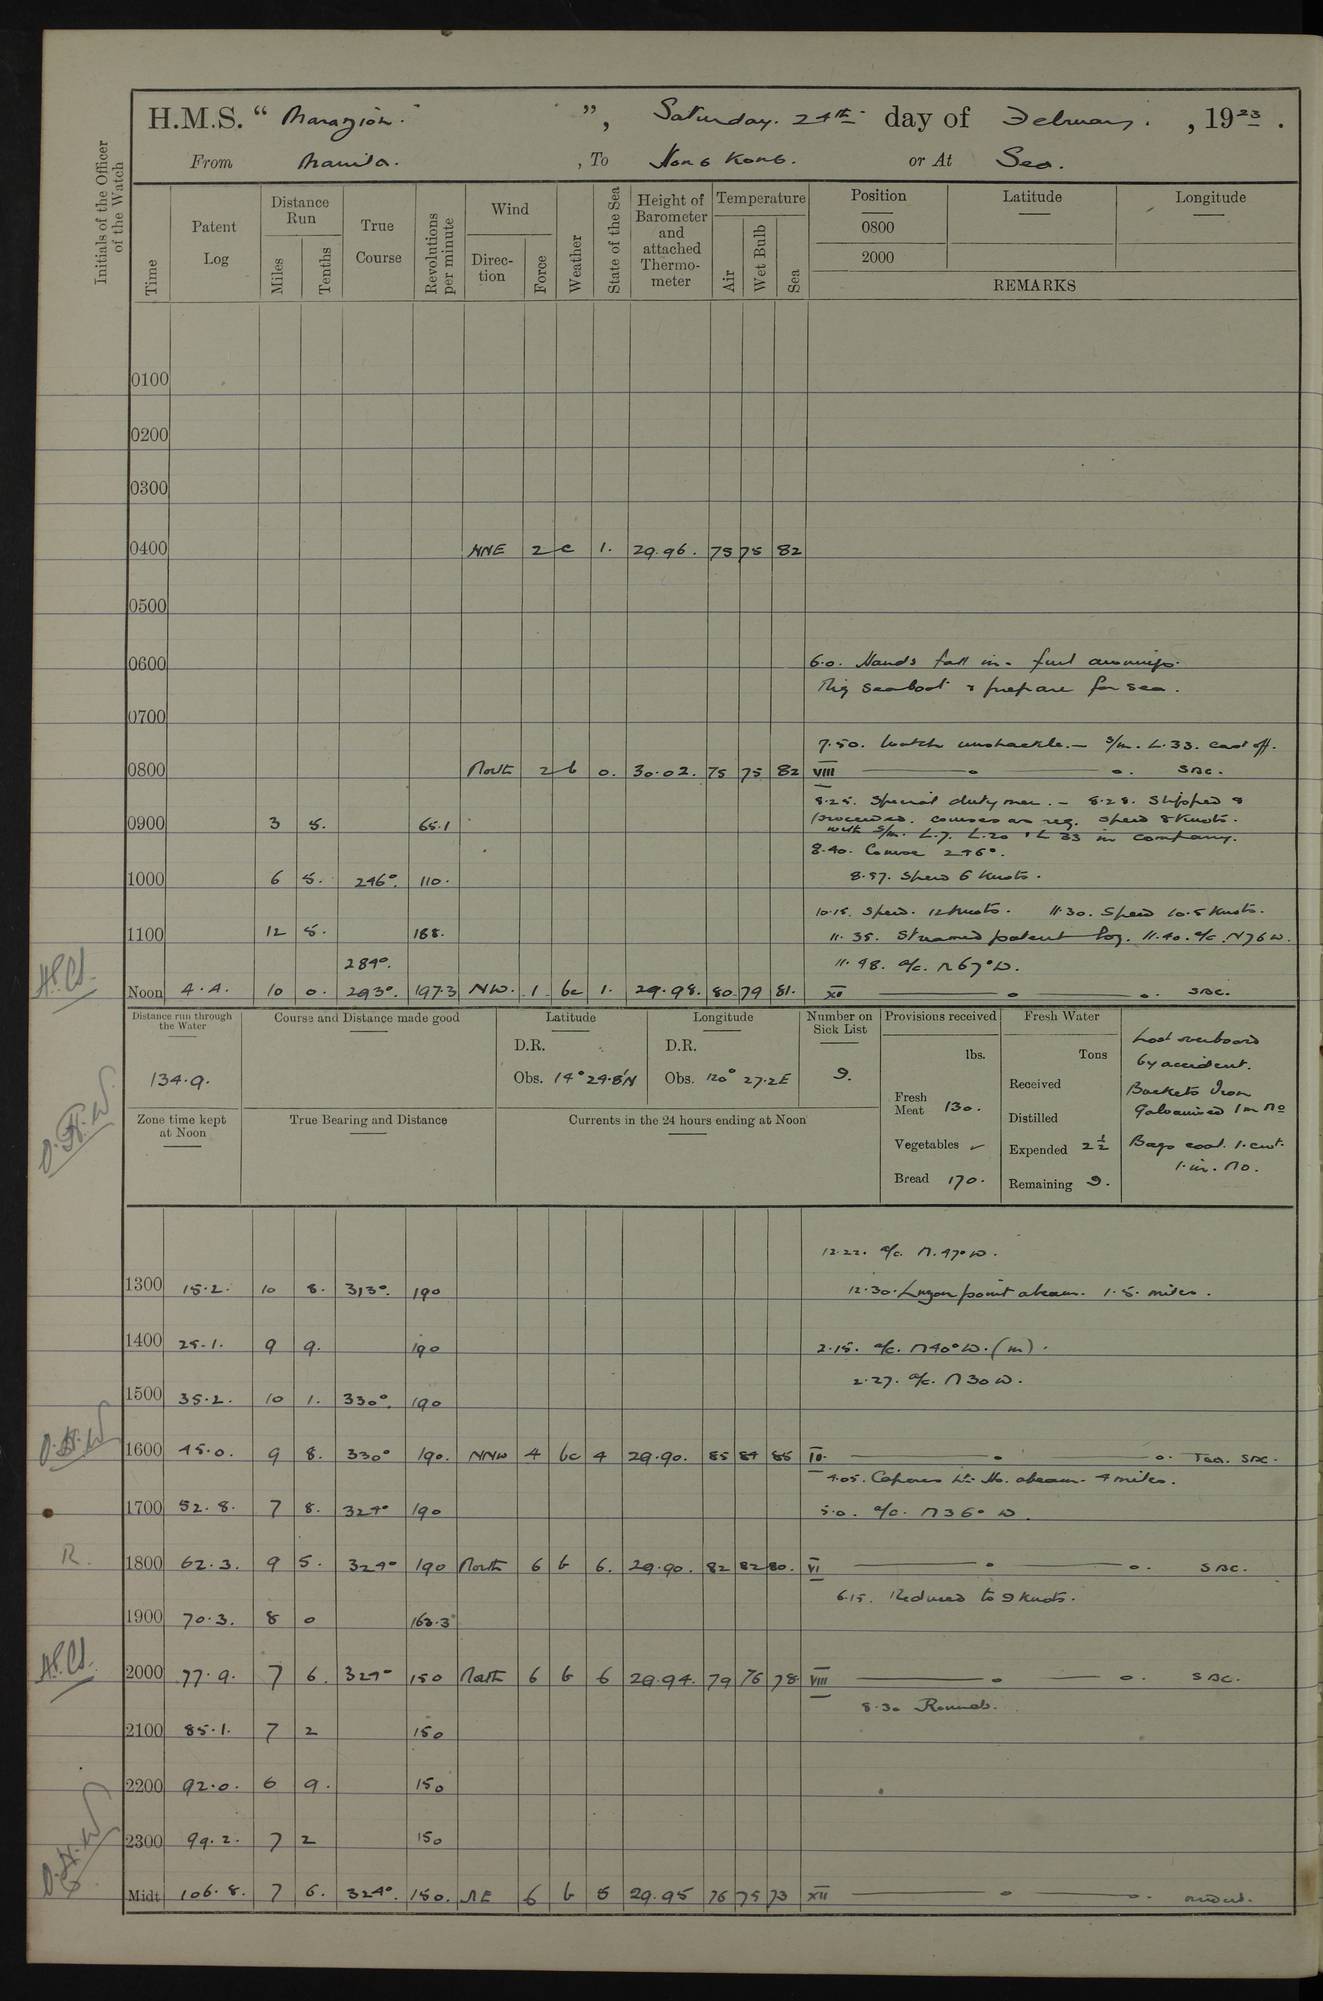 H.M.S. " Marazion. ", Saturday. 24th day of February. , 1923.
From Manila. , To Hong Kong. or At Sea.
Initials of the Officer of the Watch
Time
Patent Log
Distance Run
Miles
Tenths
True Course
Revolutions per minute
Wind
Direction
Force
Weather
State of the Sea
Height of Barometer and attached Thermometer
Temperature
Air
Wet Bulb
Sea
Position
0800
2000
Latitude
Longitude
REMARKS
0100
0200
0300
0400 NNE 2 c 1. 29.96. 75 75 82
0500
0600 6.0. Hands fall in. furl awnings.
Rig seaboat & prepare for sea.
0700
7.50. Watch unshackle. — S/m. L.33. cast off.
0800 North 2 b 0. 30.02. 75 75 82 VIII — o — o. SBC.
8.25. Special duty men. — 8.28. Slipped &
0900 3 5. 65.1 proceeded. courses as req. speed 8 Knots.
with S/m. L.7. L.20 & L 33 in company.
8.40. Course 246°.
1000 6 5. 246°. 110. 8.57. Speed 6 Knots.
10.15. Speed. 12 Knots. 11.30. Speed 10.5 Knots.
1100 12 5. 188. 11.35. Streamed patent log. 11.40. a/c. N76W.
284°. 11.48. a/c. N67°W.
Noon 4.4. 10 0. 293°. 197.3 NW. 1 bc 1. 29.98. 80 79 81. XII — o — o. SBC.
Distance run through the Water
134.9.
Course and Distance made good
Latitude
D.R.
Obs. 14°29.8'N
Longitude
D.R.
Obs. 120° 27.2E
Number on Sick List
9.
Provisions received
lbs.
Fresh Meat 130.
Vegetables ✓
Bread 170.
Fresh Water
Tons
Received
Distilled
Expended 2½
Remaining 9.
Lost overboard
by accident.
Buckets Iron
Galvanised 1 in No
Bags coal. 1. cwt.
1. in. No.
Zone time kept at Noon
True Bearing and Distance
Currents in the 24 hours ending at Noon
12.22. a/c. N.47°W.
1300 15.2. 10 8. 313°. 190 12.30. Luzon point abeam. 1.5. miles.
1400 25.1. 9 9. 190 2.15. a/c. N40°W. (m).
2.27. a/c. N30W.
1500 35.2. 10 1. 330°. 190
1600 45.0. 9 8. 330° 190. NNW 4 bc 4 29.90. 85 84 85 IV. — o — o. Tea. SBC.
4.05. Capones Lt. Ho. abeam. 4 miles.
1700 52.8. 7 8. 324° 190 5.0. a/c. N36° W.
1800 62.3. 9 5. 324° 190 North 6 b 6. 29.90. 82 82 80. VI — o — o. SBC.
6.15. Reduced to 9 Knots.
1900 70.3. 8 0 163.3
2000 77.9. 7 6. 324° 150 North 6 b 6 29.94. 79 76 78 VIII — o — o. SBC.
8.30 Rounds.
2100 85.1. 7 2 150
2200 92.0. 6 9. 150
2300 99.2. 7 2 150
Midt 106.8. 7 6. 324°. 150. NE 6 b 5 29.95 76 75 73 XII — o — o.